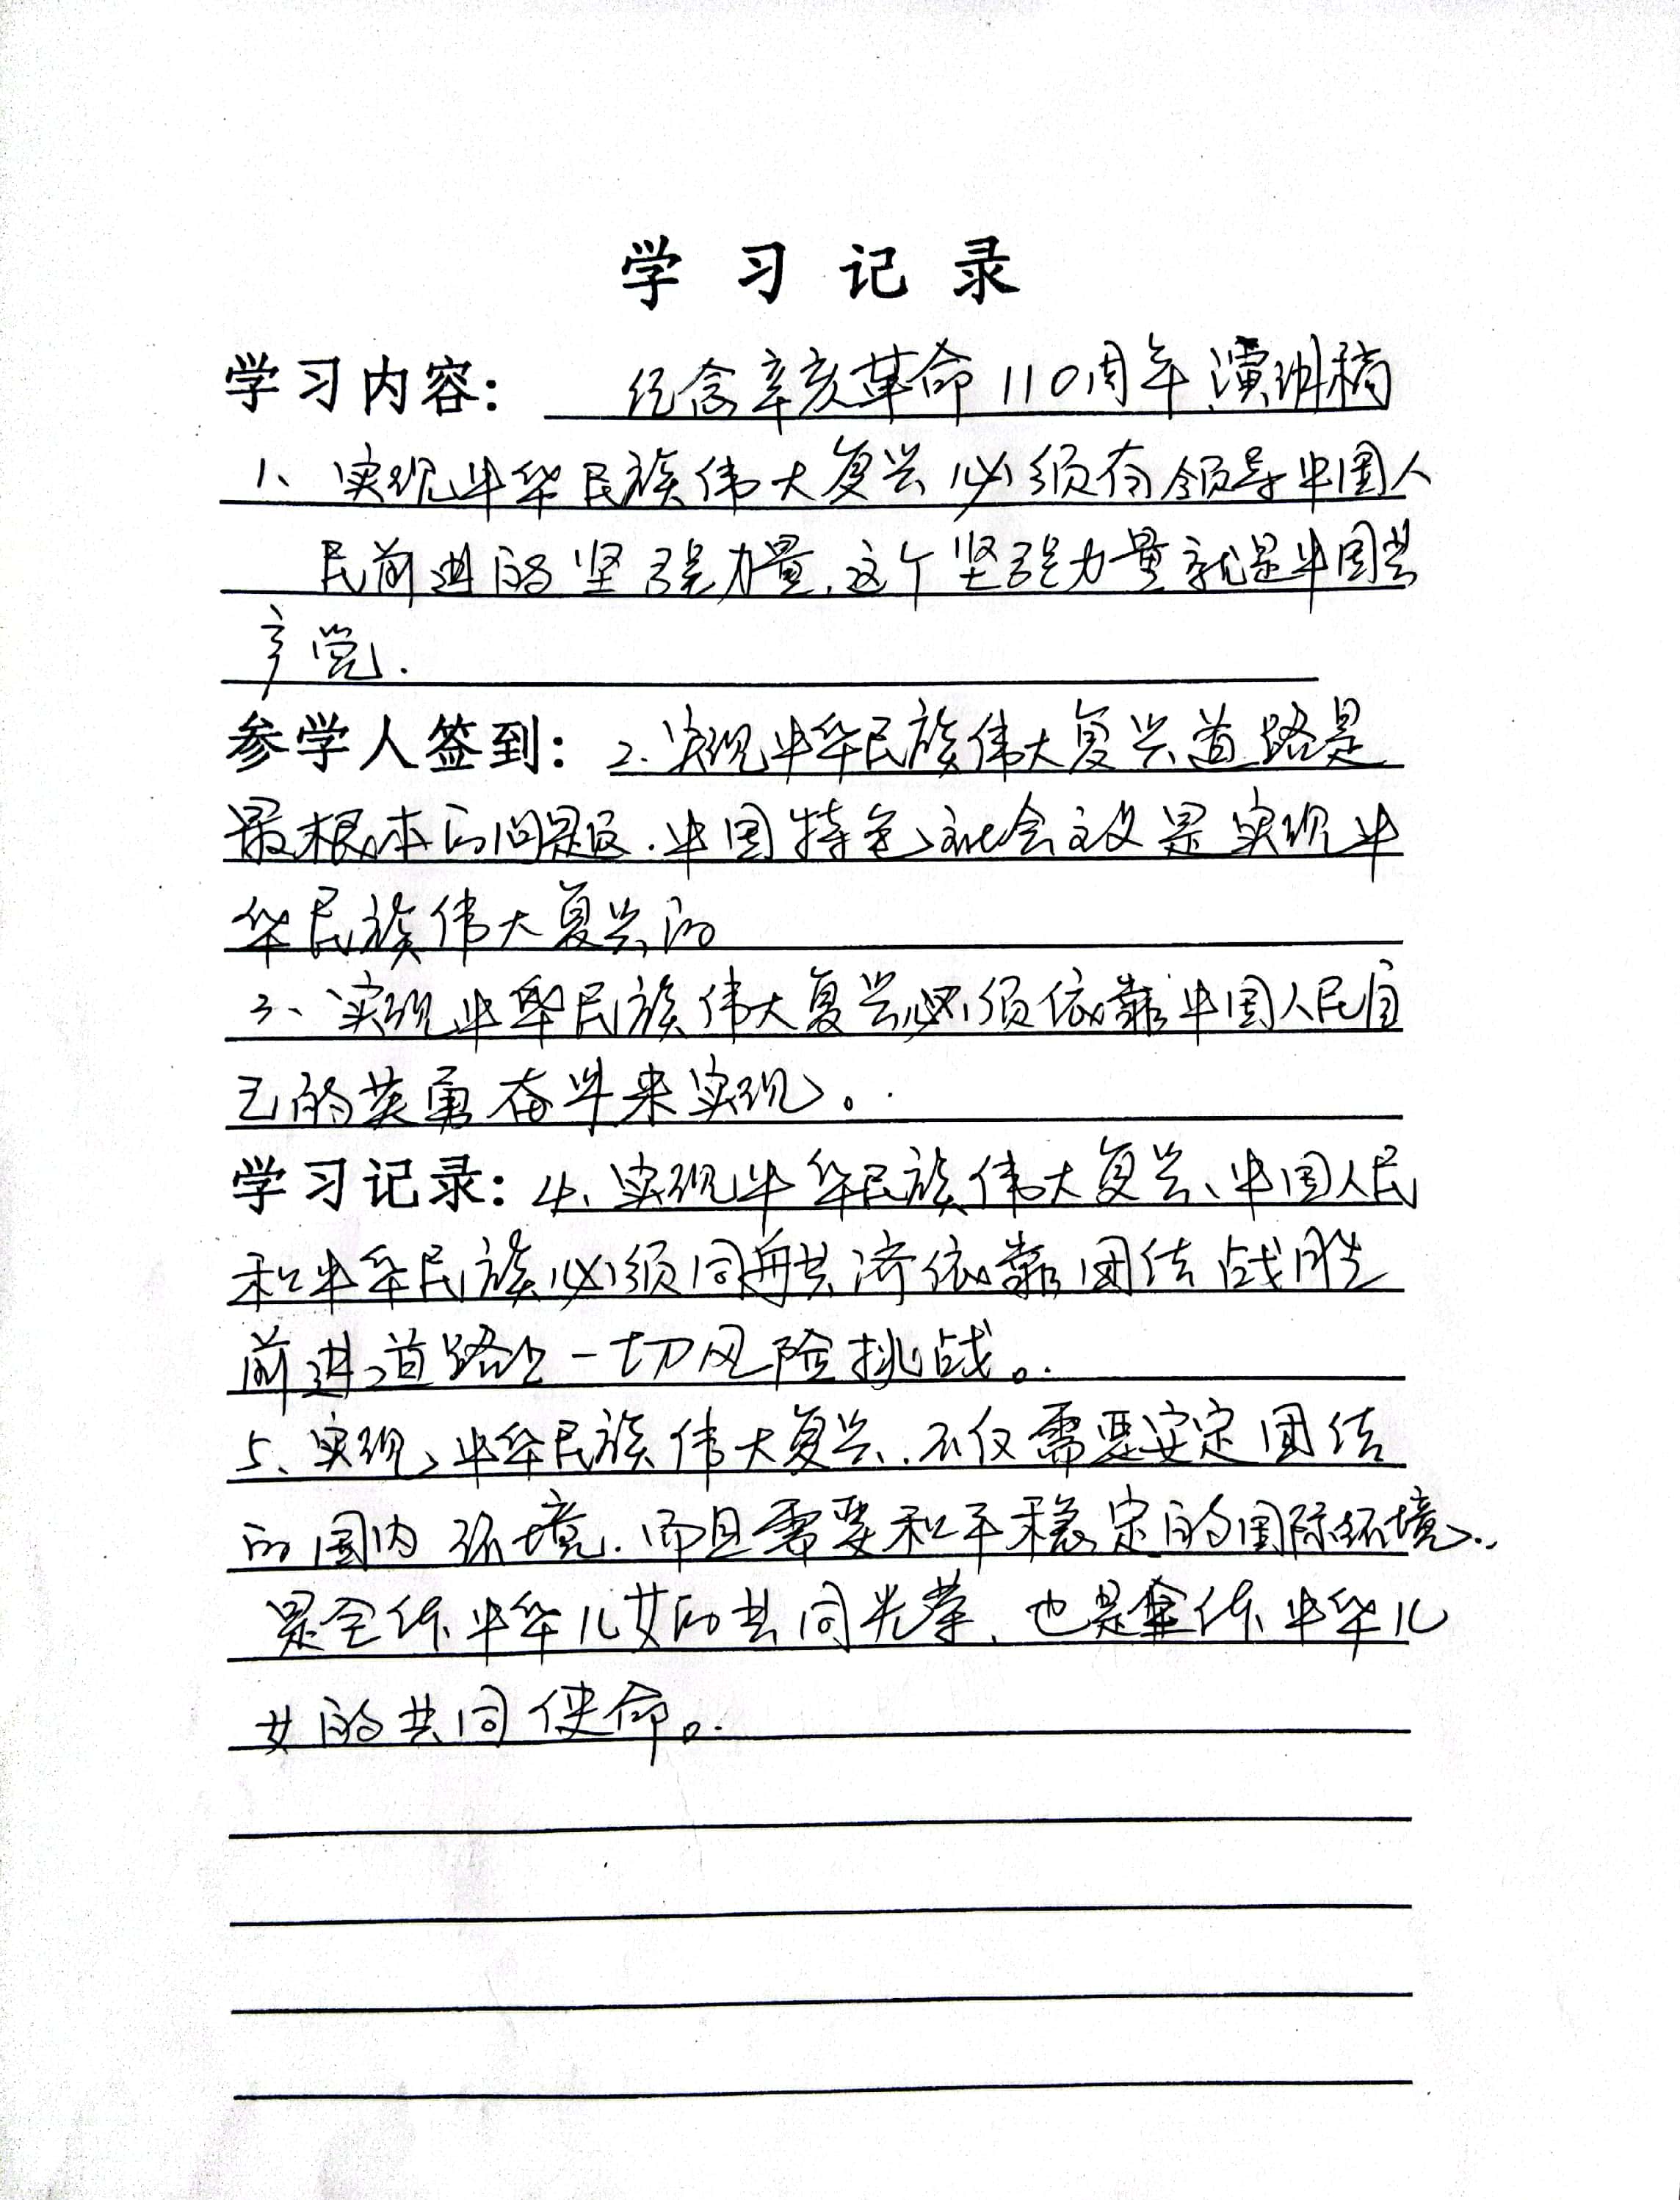 学习记录
学习内容：纪念辛亥革命110周年演讲稿
1、实现中华民族伟大复兴必须有领导中国人
民前进的坚强力量，这个坚强力量就是中国共
产党.
参学人签到：2.实现中华民族伟大复兴道路是
最根本的问题.中国特色社会主义是实现中
华民族伟大复兴的
3、实现中华民族伟大复兴必须依靠中国人民自
己的英勇奋斗来实现。
学习记录：4、实现中华民族伟大复兴、中国人民
和中华民族必须同舟共济依靠团结战胜
前进道路上一切风险挑战。
5、实现中华民族伟大复兴.不仅需要安定团结
的国内环境.而且需要和平稳定的国际环境..
是全体中华儿女的共同光荣、也是全体中华儿
女的共同使命。